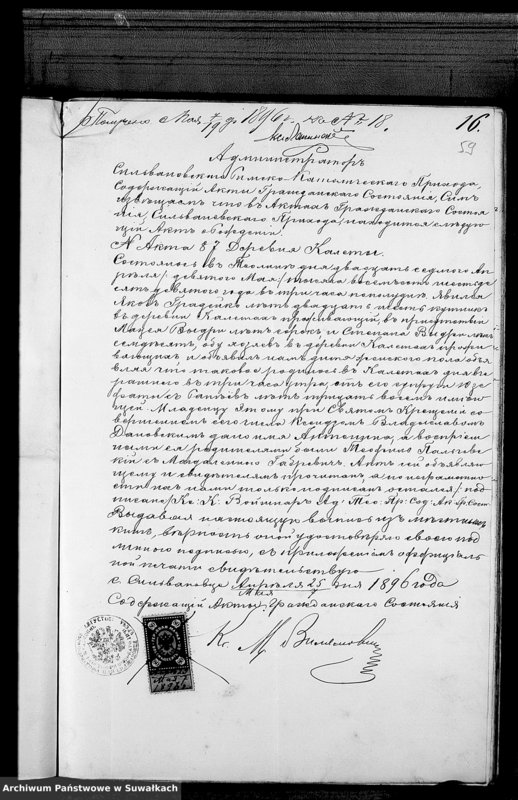 Получено Мая 1896 г. за № 18.
16.
59
Администраторъ
Сильвановскаго Римско-Католическаго Прихода,
Содержащій Акты Гражданскаго Состоянія, Симъ
извѣщаетъ что въ Актахъ Гражданскаго Состоя
нія, Сильвановскаго Прихода, находится слѣдую
щій Актъ о Рожденіи.
№ Акта 87 Деревня Калеты.
Состоялось въ дня двадцать седьмого Ап
рѣля / девятого Мая / тысяча восемьсотъ шестьде
сятъ девятого года въ три часа пополудни. Явился
Яковъ лѣтъ двадцать шесть
въ деревни Калетахъ проживающій, въ присутствіи
Матея Выдри лѣтъ сорокъ и Степана Выдри лѣтъ
семдесятъ, обу въ деревни Калетахъ прожи
вающихъ и объявилъ намъ дитя женского пола объя
вляя что таковое родилось въ Калетахъ дня вче
рашнего въ три часа утра, отъ его супруги Юзе
фаты съ лѣтъ тридцать восемь имѣю
щей. Младенцу этому при Святомъ Крещеніи со
вершенномъ сего числа Ксендзомъ Владиславомъ
дано имя Антонина, а воспріем
никами ея родителями были Теофиль
съ Магдаленною Габревичъ. Актъ сей объявляю
щему и свидѣтелямъ прочитанъ, а по неграмотно
сти ихъ нами только подписанъ остался / под
писано / Кс: К. Войшнаръ Ад: Пр: Сод: Ак: Гр: Сост:
Выдавая настоящую выпись изъ
кихъ, вѣрность оной удостовѣряю своею под
писью, съ приложеніемъ оффиціаль
ной печати свидѣтельствую
с. Сильвановце Апрѣля 25 дня 1896 года
Мая 7
Содержащій Акты Гражданскаго Состоянія
К. М. Вилямовичъ
Archiwum Państwowe w Suwałkach